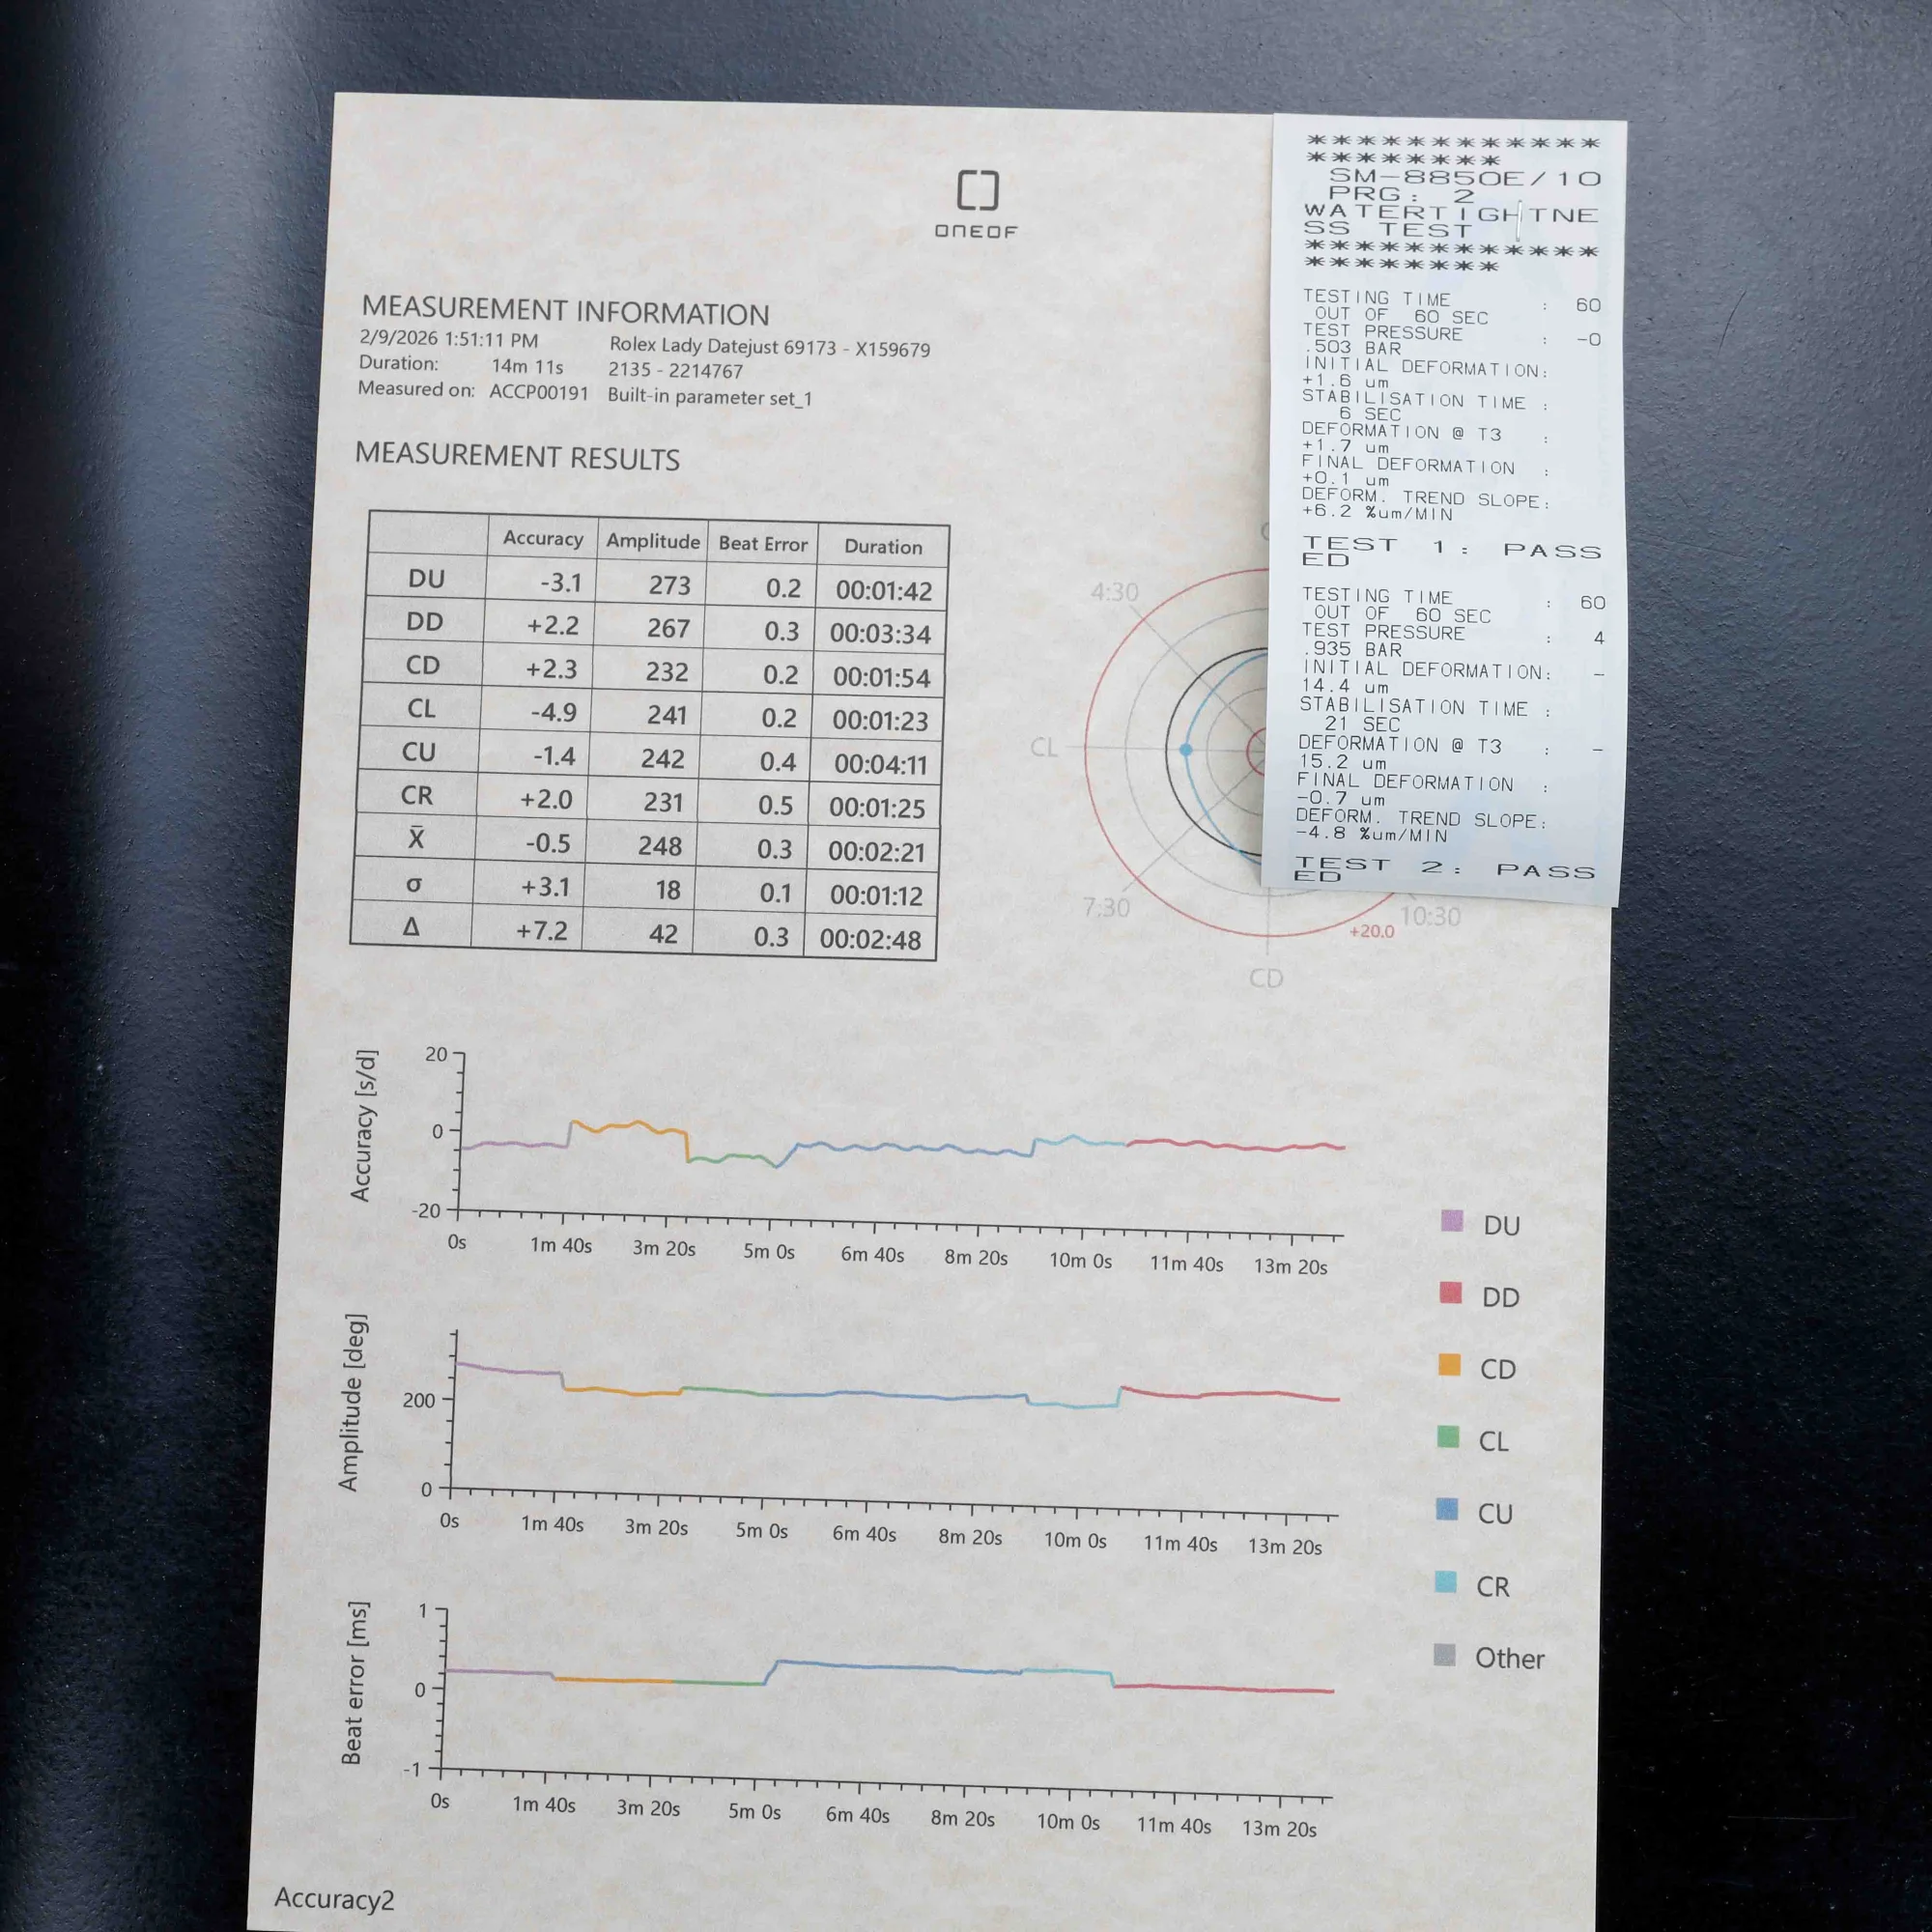 ONEOF
MEASUREMENT INFORMATION
2/9/2026 1:51:11 PM Rolex Lady Datejust 69173 - X159679
Duration: 14m 11s 2135 - 2214767
Measured on: ACCP00191 Built-in parameter set_1
MEASUREMENT RESULTS
Accuracy Amplitude Beat Error Duration
DU -3.1 273 0.2 00:01:42
DD +2.2 267 0.3 00:03:34
CD +2.3 232 0.2 00:01:54
CL -4.9 241 0.2 00:01:23
CU -1.4 242 0.4 00:04:11
CR +2.0 231 0.5 00:01:25
X̄ -0.5 248 0.3 00:02:21
σ +3.1 18 0.1 00:01:12
Δ +7.2 42 0.3 00:02:48
4:30
CL
7:30
CD
+20.0
10:30
************
********
SM-8850E/10
PRG: 2
WATERTIGHTNE
SS TEST
************
********
TESTING TIME : 60
OUT OF 60 SEC
TEST PRESSURE : -0
.503 BAR
INITIAL DEFORMATION:
+1.6 um
STABILISATION TIME :
6 SEC
DEFORMATION @ T3 :
+1.7 um
FINAL DEFORMATION :
+0.1 um
DEFORM. TREND SLOPE:
+6.2 %um/MIN
TEST 1: PASS
ED
TESTING TIME : 60
OUT OF 60 SEC
TEST PRESSURE : 4
.935 BAR
INITIAL DEFORMATION: -
14.4 um
STABILISATION TIME :
21 SEC
DEFORMATION @ T3 : -
15.2 um
FINAL DEFORMATION :
-0.7 um
DEFORM. TREND SLOPE:
-4.8 %um/MIN
TEST 2: PASS
ED
Accuracy [s/d]
20
0
-20
0s 1m 40s 3m 20s 5m 0s 6m 40s 8m 20s 10m 0s 11m 40s 13m 20s
Amplitude [deg]
200
0
0s 1m 40s 3m 20s 5m 0s 6m 40s 8m 20s 10m 0s 11m 40s 13m 20s
Beat error [ms]
1
0
-1
0s 1m 40s 3m 20s 5m 0s 6m 40s 8m 20s 10m 0s 11m 40s 13m 20s
DU
DD
CD
CL
CU
CR
Other
Accuracy2